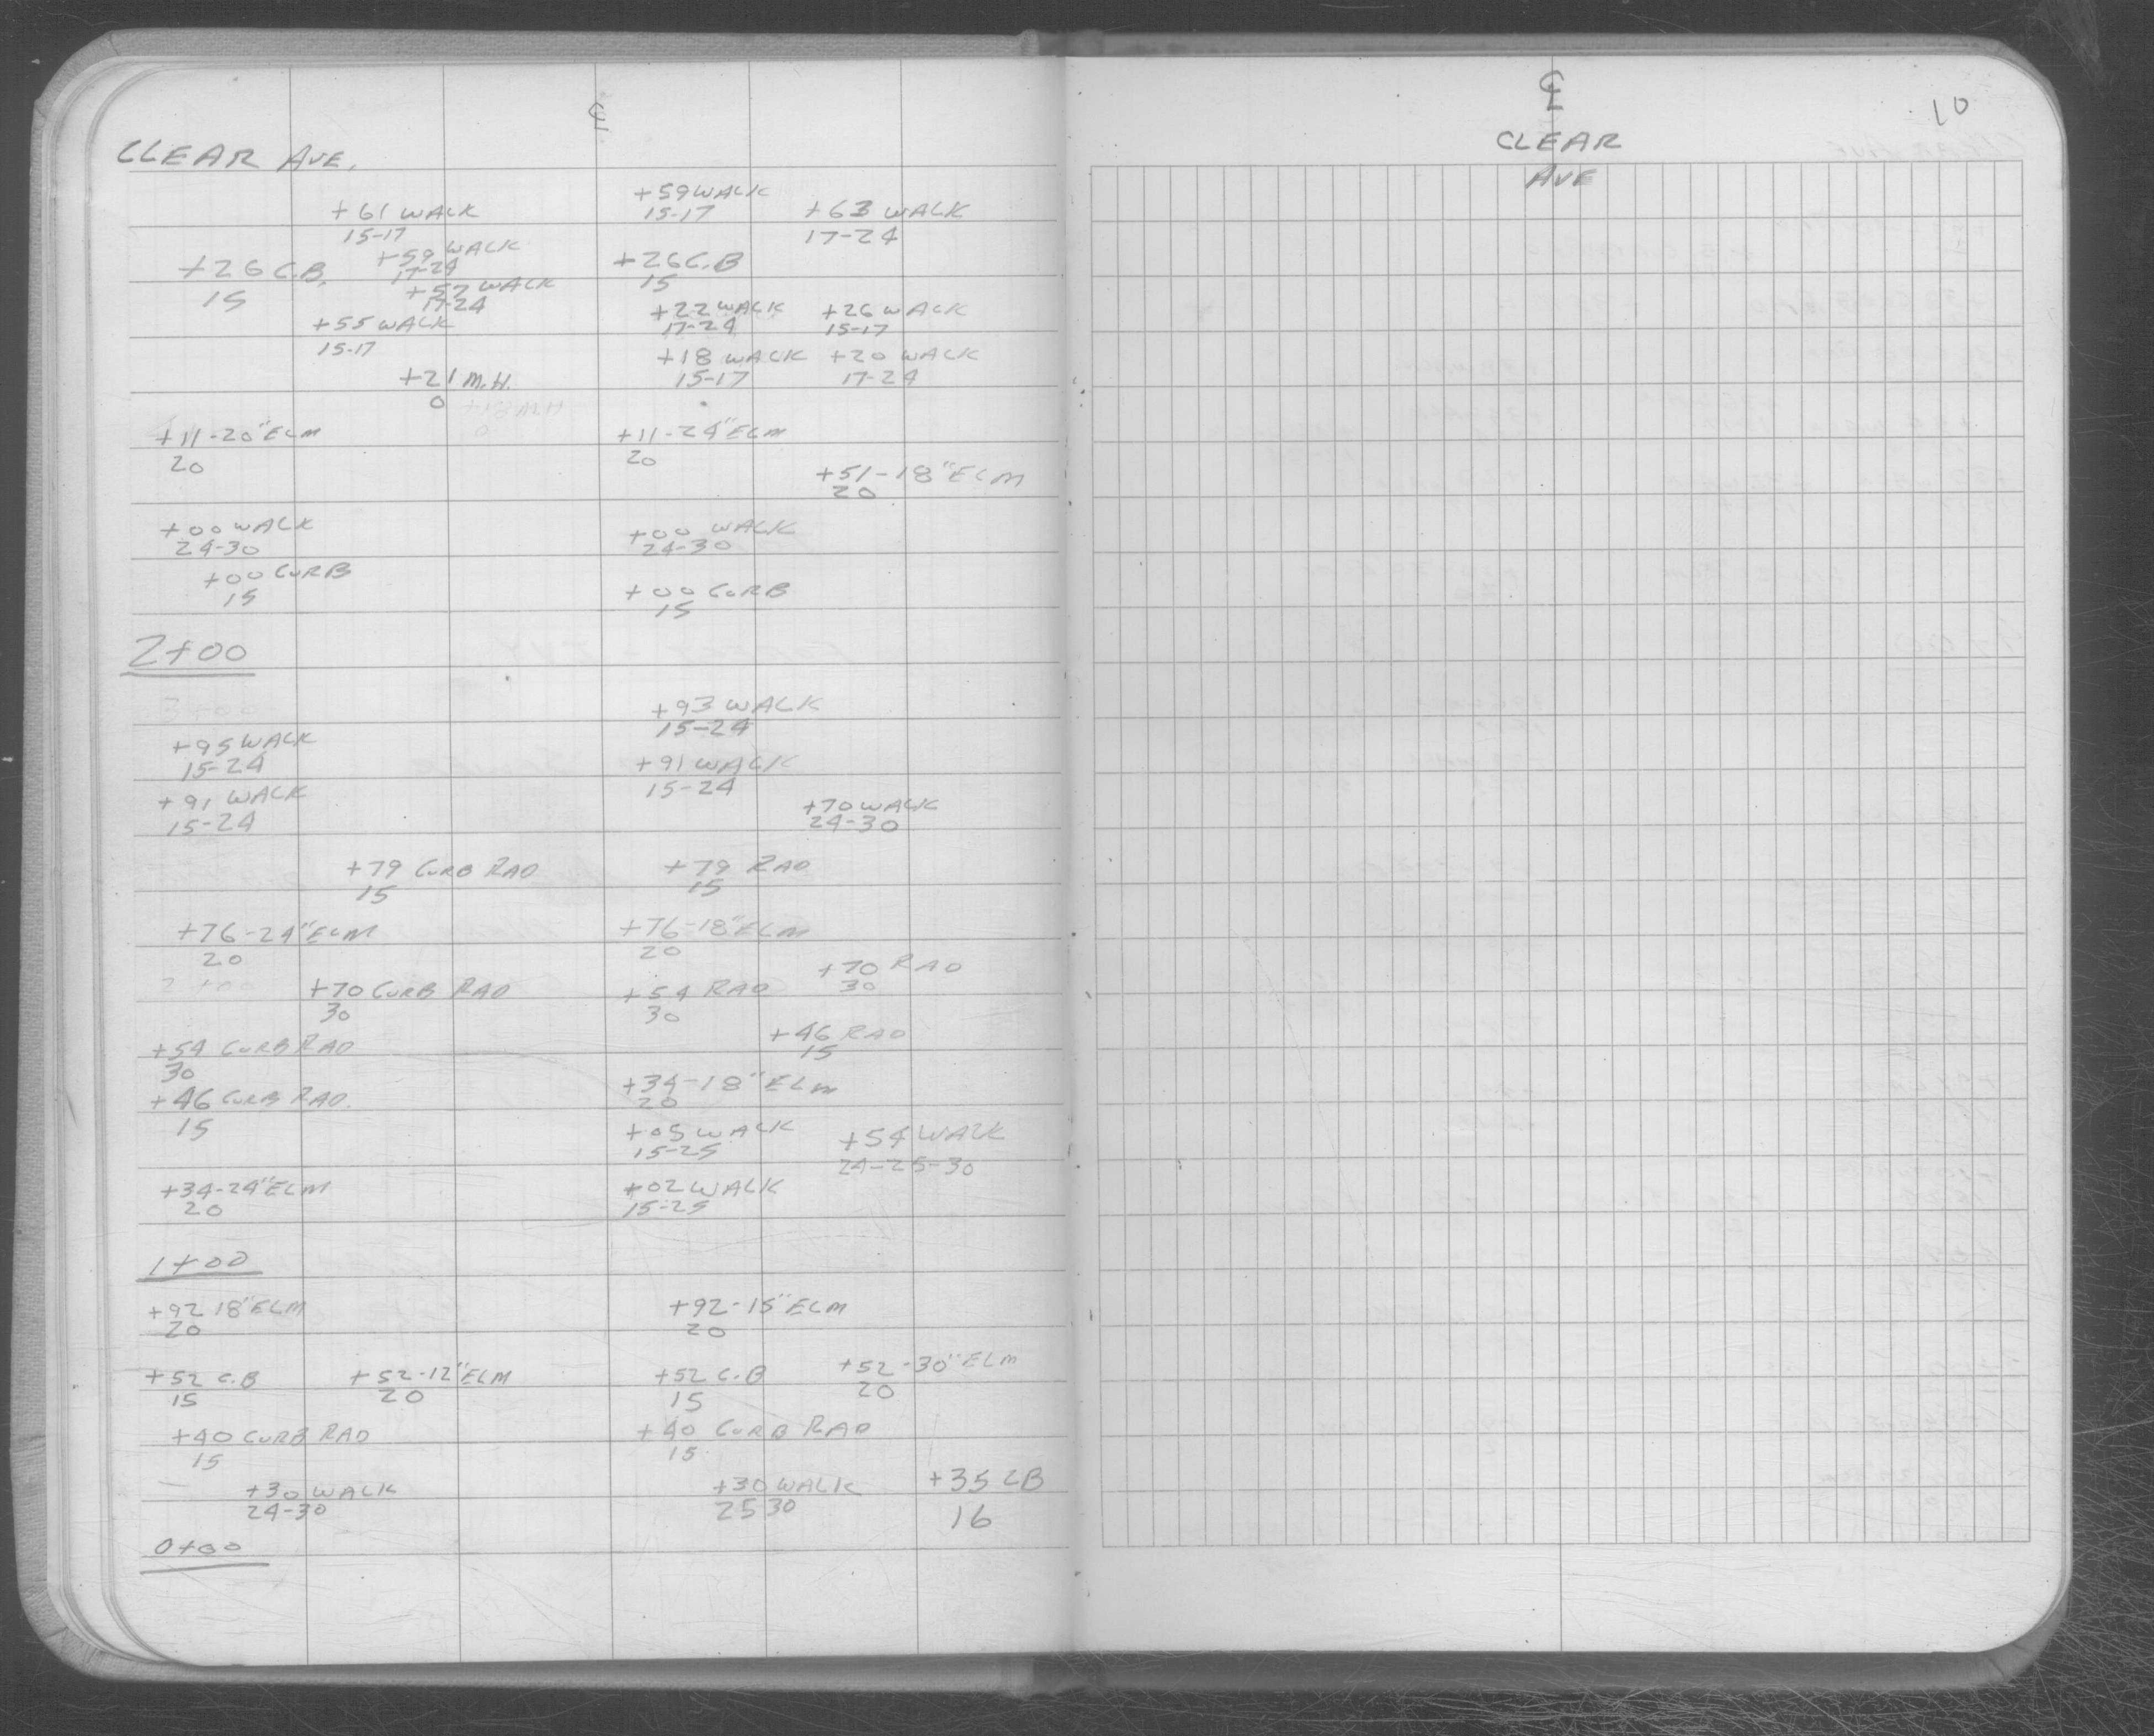 ℄
CLEAR AVE.
+59 WALK
15-17
+61 WALK
15-17
+63 WALK
17-24
+59 WALK
17-24
+26 C.B.
15
+26 C.B
15
+57 WALK
17-24
+22 WALK
17-24
+26 WALK
15-17
+55 WALK
15-17
+18 WALK
15-17
+20 WALK
17-24
+21 M.H.
0
+11-20" ELM
20
+11-24" ELM
20
+51-18" ELM
20
+00 WALK
24-30
+00 WALK
24-30
+00 CURB
15
+00 CURB
15
2+00
+93 WALK
15-24
+95 WALK
15-24
+91 WALK
15-24
+91 WALK
15-24
+70 WALK
24-30
+79 CURB RAD
15
+79 RAD
15
+76-24" ELM
20
+76-18" ELM
20
+70 RAD
30
+70 CURB RAD
30
+54 RAD
30
+54 CURB RAD
30
+46 RAD
15
+46 CURB RAD.
15
+34-18" ELM
20
+05 WALK
15-25
+54 WALK
24-25-30
+34-24" ELM
20
+02 WALK
15-25
1+00
+92 18" ELM
20
+92-15" ELM
20
+52 C.B
15
+52-12" ELM
20
+52 C.B
15
+52-30" ELM
20
+40 CURB RAD
15
+40 CURB RAD
15
+30 WALK
24-30
+30 WALK
25 30
+35 CB
16
0+00
℄
10
CLEAR
AVE